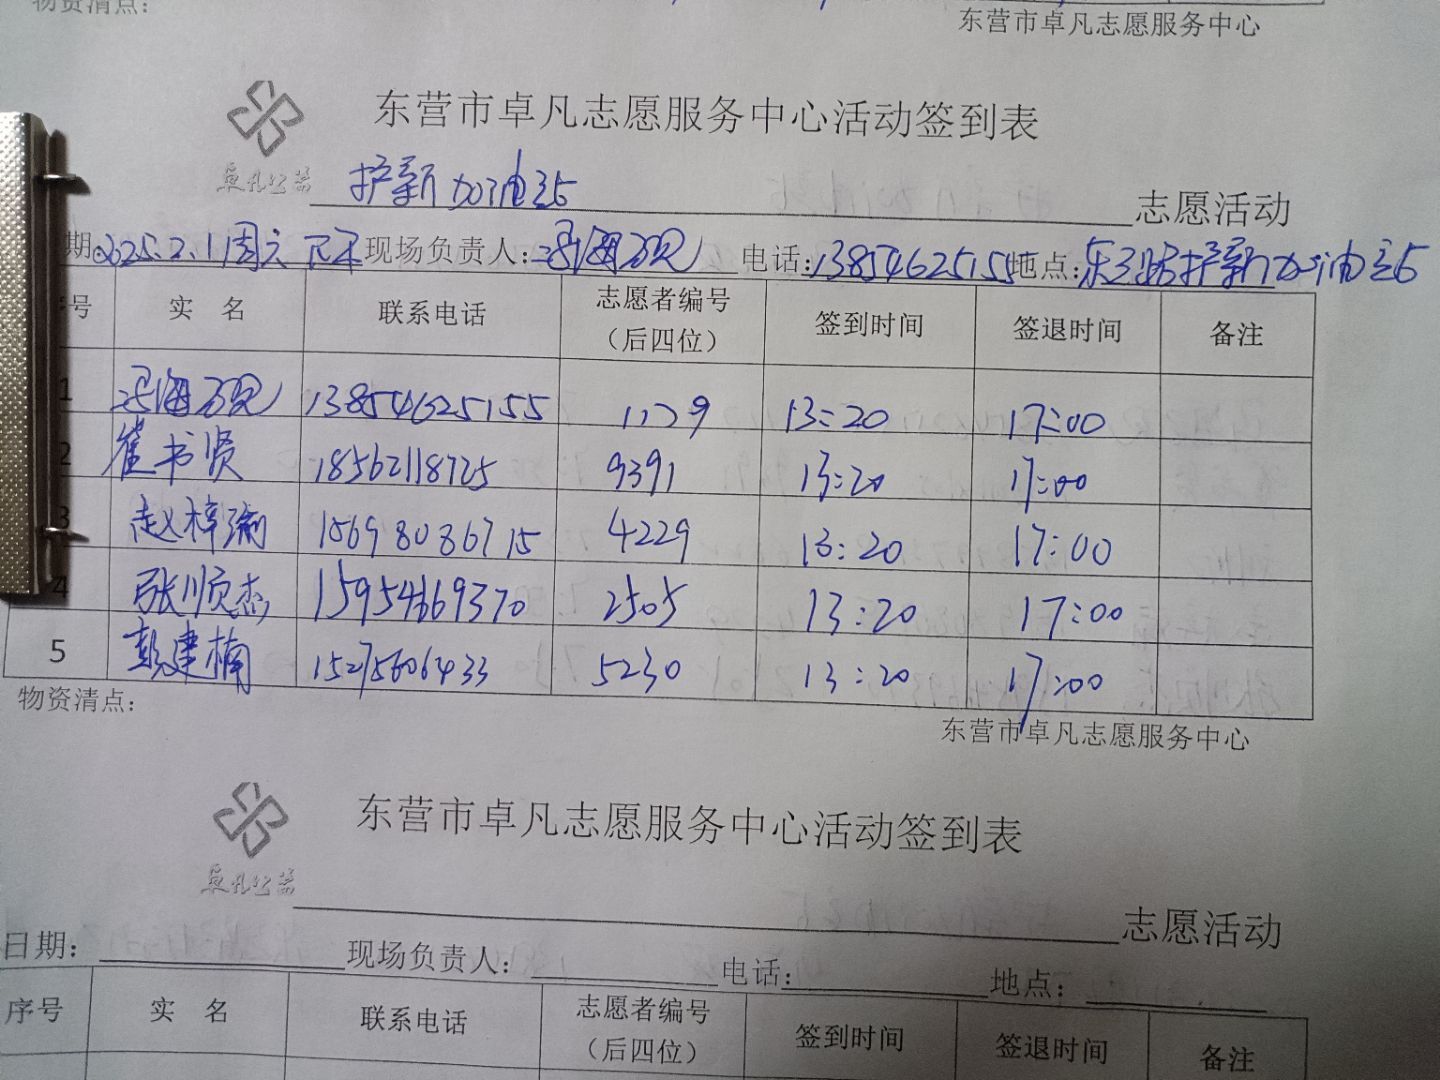 物资清点：
东营市卓凡志愿服务中心
东营市卓凡志愿服务中心活动签到表
卓凡公益
护新加油站 志愿活动
期：2025.2.1周六 下午 现场负责人：冯海砚 电话：13854625155 地点：东三路护新加油站
号 实 名 联系电话 志愿者编号（后四位） 签到时间 签退时间 备注
1 冯海砚 13854625155 1179 13:20 17:00
2 崔书贤 18562118725 9391 13:20 17:00
3 赵梓瑜 15698086715 4229 13:20 17:00
4 张顺杰 15954669370 2505 13:20 17:00
5 彭建楠 15275606433 5230 13:20 17:00
物资清点：
东营市卓凡志愿服务中心
东营市卓凡志愿服务中心活动签到表
卓凡公益
志愿活动
日期： 现场负责人： 电话： 地点：
序号 实 名 联系电话 志愿者编号（后四位） 签到时间 签退时间 备注